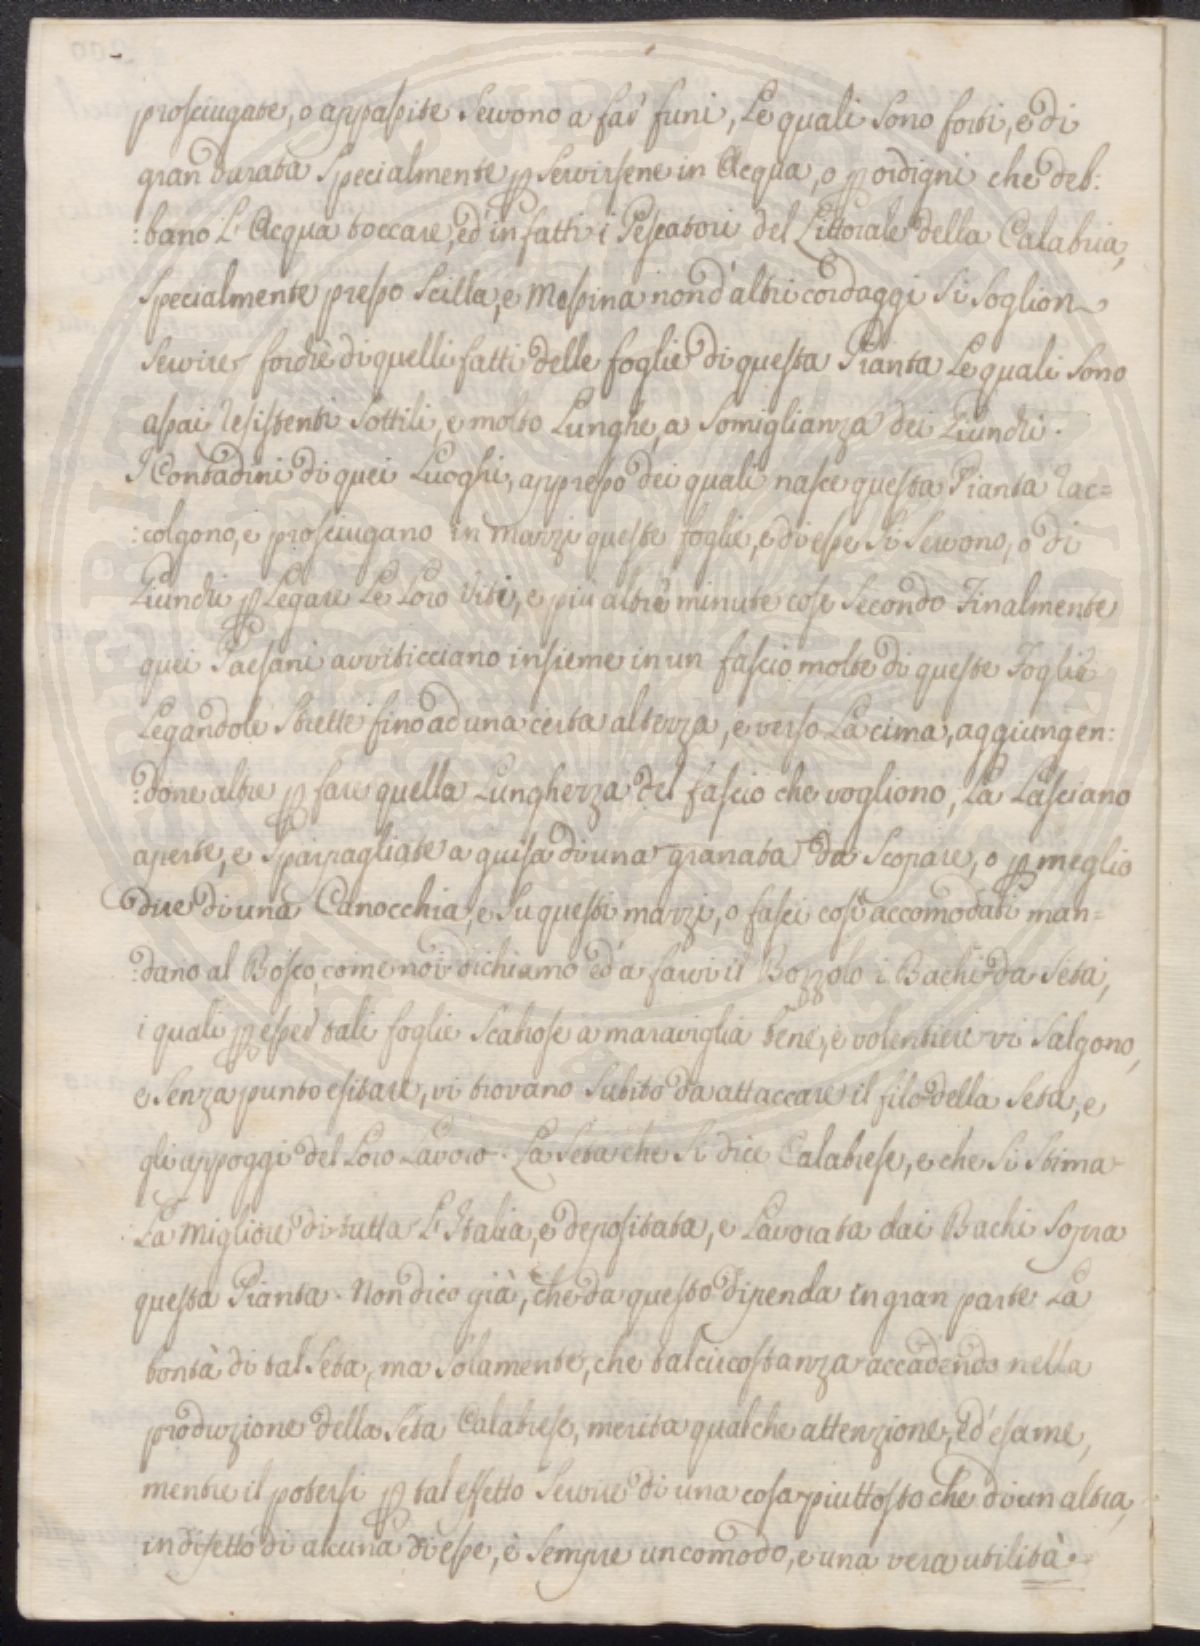 prosciugate, o appassite servono a far funi, Le quali sono forti, e di
gran durata specialmente p servirsene in Acqua, o p ordigni che deb:
:bano L'Acqua toccare, ed in fatti i Pescatori del Littorale della Calabria,
specialmente presso Scilla, e Messina non d'altri cordaggi si soglion
servire fordiè di quelli fatti delle foglie di questa Pianta Le quali sono
assai resistenti sottili, e molto Lunghe, a somiglianza dei Giunchi.
I Contadini di quei Luoghi, appresso dei quali nasce questa Pianta rac=
:colgono, e prosciugano in mazzi queste foglie, e di esse si servono, o di
Giunchi p Legare Le Loro Viti, e più altre minute cose secondo Finalmente
quei Paesani avviticciano insieme in un fascio molte di queste Foglie
Legandole strette fino ad una certa altezza, e verso La cima, aggiungen:
:done altre p fare quella Lungherza del fascio che vogliono, La Lasciano
aperte, e sparpagliate a guisa di una granata da scopare, o p meglio
dire di una Canocchia, e su questi mazzi, o fasci così accomodati man=
:dano al Bosco, come noi dichiamo ed a farvi il Bozzolo i Bachi da seta,
i quali p esser tali foglie scabrose a maraviglia bene, e volentieri vi salgono,
e senza punto esitare, vi trovano subito da attaccare il filo della seta, e
gli appoggi del Loro Lavoro. La seta che si dice Calabrese, e che si stima
La migliore di tutta L'Italia, è depositata, e Lavorata dai Bachi sopra
questa Pianta. Non dico già, che da questo dipenda in gran parte La
bontà di tal seta, ma solamente, che tal circostanza accadendo nella
produzione della seta Calabrese, merita qualche attenzione, ed esame,
mentre il potersi p tal effetto servire di una cosa piuttosto che di un altra,
in difetto di alcuna di esse, è sempre un comodo, e una vera utilità.